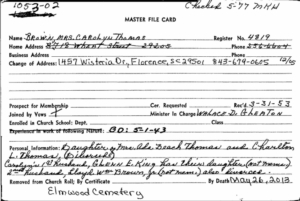 1053-02 Checked 5-77 MKW
MASTER FILE CARD
Name Brown, Mrs. Carolyn Thomas Reg. No. 4819
Home Address Street 29205 Phone
Business Address Phone
Change of Address: 1457 Wisteria Dr., Florence, SC 29501 843-679-0605
Prospect for Membership Cor. Requested Rec'd 3-31-53
Joined by Vows Minister in Charge Wallace D.
Enrolled in Church School: Dept. Class
BD: 5-1-43
Personal Information: Daughter of Mrs. Ada Beach Thomas and Charlton
L. Thomas, (Divorced)
Carolyn's 1st husband, Glenn E. King has their daughter
2nd husband, Lloyd Wm. Brown, Jr. also divorced.
Removed from Church Roll: By Certificate By Death May 26, 2013.
Elmwood Cemetery